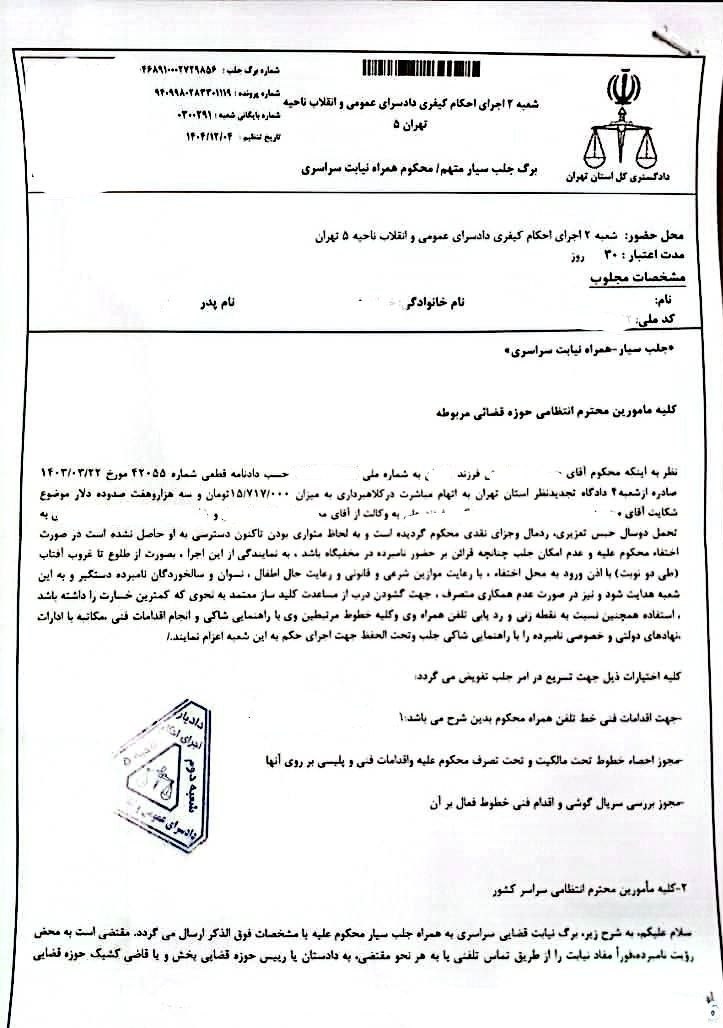 شماره برگ جلب : ۰۴۶۸۹۱۰۰۰۲۷۲۹۸۵۶
شماره پرونده : ۹۴۰۹۹۸۰۲۸۳۳۰۱۱۱۹
شماره بایگانی شعبه : ۰۳۰۰۲۹۱
تاریخ تنظیم : ۱۴۰۴/۱۲/۰۴
شعبه ۲ اجرای احکام کیفری دادسرای عمومی و انقلاب ناحیه
۵ تهران
برگ جلب سیار متهم/ محکوم همراه نیابت سراسری
دادگستری کل استان تهران
محل حضور: شعبه ۲ اجرای احکام کیفری دادسرای عمومی و انقلاب ناحیه ۵ تهران
مدت اعتبار : ۳۰ روز
مشخصات مجلوب
نام: نام خانوادگی: نام پدر
کد ملی:
*جلب سیار-همراه نیابت سراسری*
کلیه مامورین محترم انتظامی حوزه قضائی مربوطه
نظر به اینکه محکوم آقای فرزند به شماره ملی حسب دادنامه قطعی شماره ۴۲۰۵۵ مورخ ۱۴۰۳/۰۳/۲۲
صادره ازشعبه۴ دادگاه تجدیدنظر استان تهران به اتهام مباشرت درکلاهبرداری به میزان ۱۵/۷۱۷/۰۰۰تومان و سه هزاروهفت صدوده دلار موضوع
شکایت آقای به وکالت از آقای و به
تحمل دوسال حبس تعزیری، ردمال وجزای نقدی محکوم گردیده است و به لحاظ متواری بودن تاکنون دسترسی به او حاصل نشده است در صورت
اختفاء محکوم علیه و عدم امکان جلب چنانچه قرائن بر حضور نامبرده در مخفیگاه باشد ، به نمایندگی از این اجرا ، بصورت از طلوع تا غروب آفتاب
(طی دو نوبت) با اذن ورود به محل اختفاء ، با رعایت موازین شرعی و قانونی و رعایت حال اطفال ، نسوان و سالخوردگان نامبرده دستگیر و به این
شعبه هدایت شود و نیز در صورت عدم همکاری متصرف ، جهت گشودن درب از مساعدت کلید ساز معتمد به نحوی که کمترین خسارت را داشته باشد
، استفاده همچنین نسبت به نقطه زنی و رد یابی تلفن همراه وی وکلیه خطوط مرتبطین وی با راهنمایی شاکی و انجام اقدامات فنی ،مکاتبه با ادارات
،نهادهای دولتی و خصوصی نامبرده را با راهنمایی شاکی جلب وتحت الحفظ جهت اجرای حکم به این شعبه اعزام نمایند./
کلیه اختیارات ذیل جهت تسریع در امر جلب تفویض می گردد:
-جهت اقدامات فنی خط تلفن همراه محکوم بدین شرح می باشد:۱
-مجوز احصاء خطوط تحت مالکیت و تحت تصرف محکوم علیه واقدامات فنی و پلیسی بر روی آنها
-مجوز بررسی سریال گوشی و اقدام فنی خطوط فعال بر آن
دادیار
اجرای احکام
شعبه دوم
دادسرای عمومی و
۲-کلیه مأمورین محترم انتظامی سراسر کشور
سلام علیکم، به شرح زیر، برگ نیابت قضایی سراسری به همراه جلب سیار محکوم علیه با مشخصات فوق الذکر ارسال می گردد. مقتضی است به محض
رؤیت نامبرده،فوراً مفاد نیابت را از طریق تماس تلفنی یا به هر نحو مقتضی، به دادستان یا رییس حوزه قضایی بخش و یا قاضی کشیک حوزه قضایی